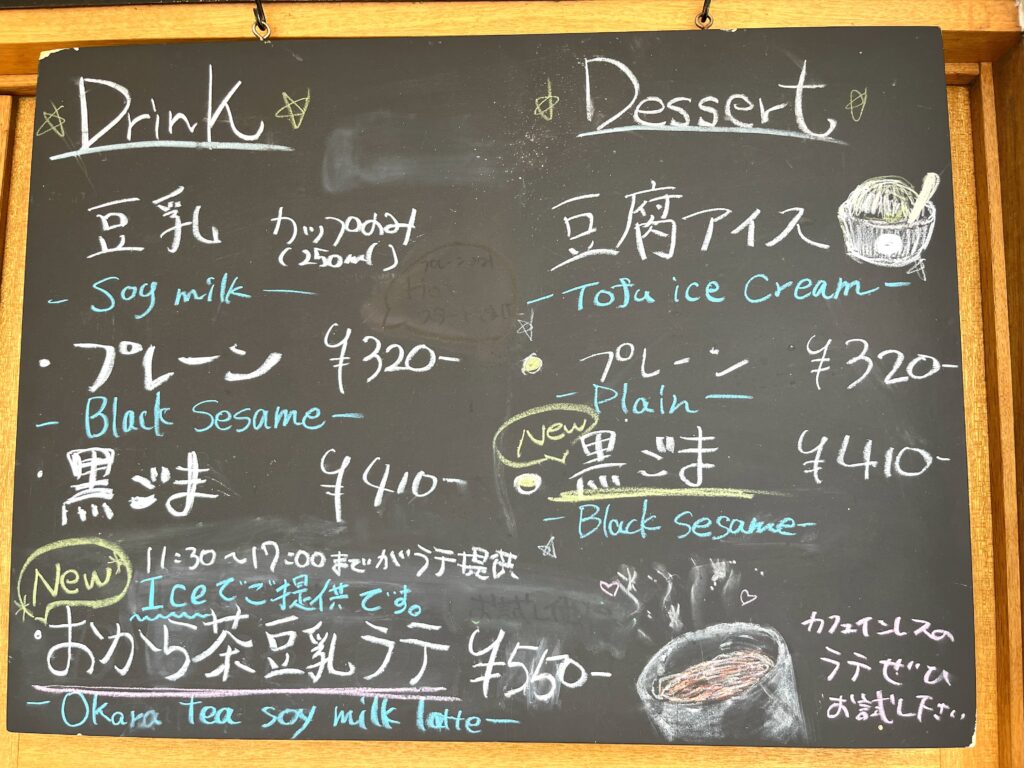 Drink
豆乳 カップのみ
(250ml)
- Soy milk -
・プレーン ¥320-
- Black Sesame -
・黒ごま ¥410-
New
11:30～17:00までがラテ提供
Iceでご提供です。
・おから茶豆乳ラテ ¥560-
- Okara tea soy milk latte -
Dessert
豆腐アイス
- Tofu ice Cream -
プレーン ¥320-
- Plain -
New
黒ごま ¥410-
- Black sesame -
カフェインレスの
ラテぜひ
お試し下さい